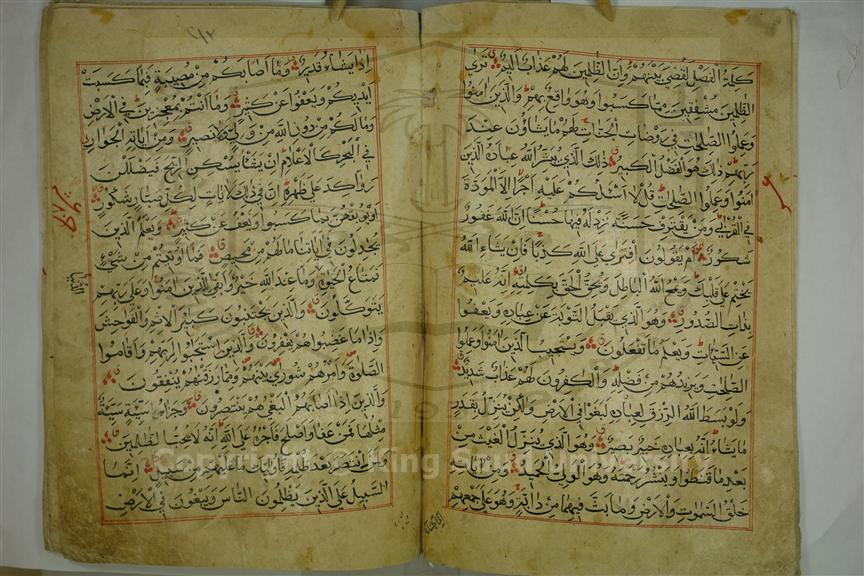 كلمة الفصل لقضي بينهم وان الظلمين لهم عذاب اليم ترى
الظلمين مشفقين مما كسبوا وهو واقع بهم والذين امنوا
وعملوا الصلحات في روضات الجنات لهم ما يشاؤن عند
ربهم ذلك هو الفضل الكبير ذلك الذي يبشر الله عباده الذين
امنوا وعملوا الصلحت قل لا اسئلكم عليه اجرا الا المودة
في القربى ومن يقترف حسنة نزد له فيها حسنا ان الله غفور
شكور ام يقولون افترى على الله كذبا فان يشاء الله
يختم على قلبك ويمح الله الباطل ويحق الحق بكلمته انه عليم
بذات الصدور وهو الذي يقبل التوبة عن عباده ويعفوا
عن السيات ويعلم ما تفعلون ويستجيب الذين امنوا وعملوا
الصلحت ويزيدهم من فضله والكفرون لهم عذاب شديد
ولو بسط الله الرزق لعباده لبغوا في الارض ولكن ينزل بقدر
ما يشاء انه بعباده خبير بصير وهو الذي ينزل الغيث من
بعد ما قنطوا وينشر رحمته وهو الولي الحميد ومن اياته
خلق السموت والارض وما بث فيهما من دابة وهو على جمعهم
اذا يشاء
اذا يشاء قدير وما اصابكم من مصيبة فبما كسبت
ايديكم ويعفوا عن كثير وما انتم بمعجزين في الارض
وما لكم من دون الله من ولي ولا نصير ومن اياته الجوار
في البحر كالاعلام ان يشأ يسكن الريح فيظللن
رواكد على ظهره ان في ذلك لايات لكل صبار شكور
او يوبقهن بما كسبوا ويعف عن كثير ويعلم الذين
يجدلون في اياتنا ما لهم من محيص فما اوتيتم من شيء
فمتاع الحيوة وما عند الله خير وابقى للذين امنوا وعلى ربهم
الدنيا
يتوكلون والذين يجتنبون كبير الاثم والفواحش
واذا ما غضبوا هم يغفرون والذين استجابوا لربهم واقاموا
الصلوة وامرهم شورى بينهم ومما رزقنهم ينفقون
والذين اذا اصابهم البغي هم ينتصرون وجزاؤ سيئة سيئة
مثلها فمن عفا واصلح فاجره على الله انه لا يحب الظالمين
ولمن انتصر بعد ظلمه فاولئك ما عليهم من سبيل انما
السبيل على الذين يظلمون الناس ويبغون في الارض
Copyright © King Saud University